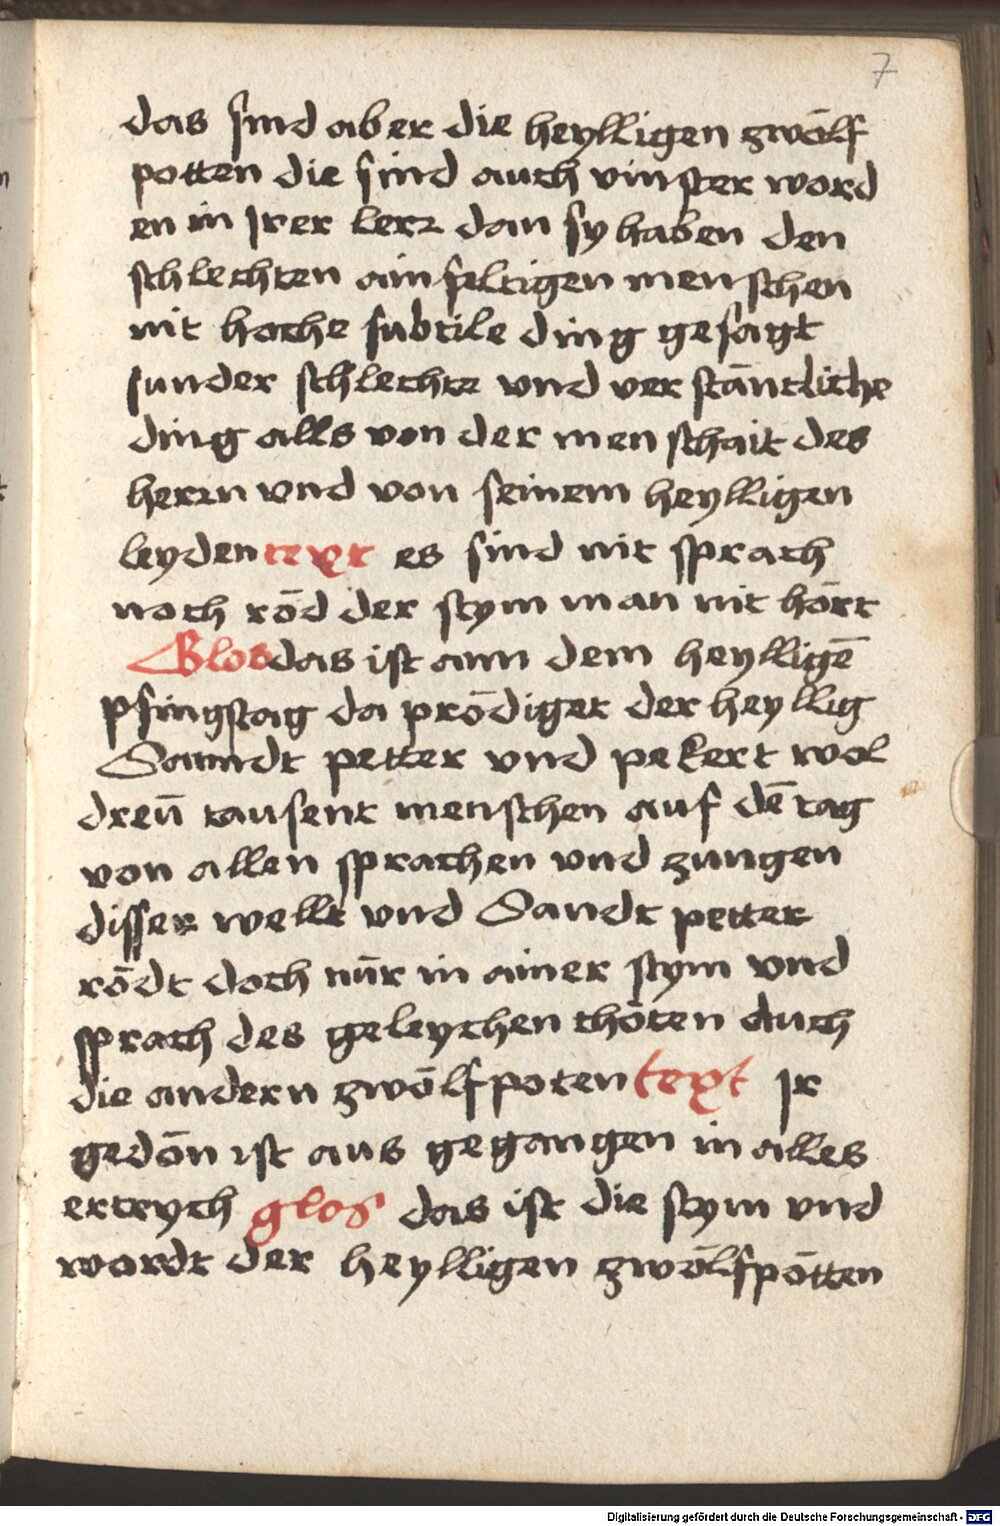 7
das sind aber die heylligen zwölf
potten die sind auch vinster word
en in Irer lerr dan sy haben den
schlechten ainfeltigen menschen
nit hoche subtile ding gesagt
sunder schlechtt vnd verstāntliche
ding alls von der menschait des
herrn vnd von seinem heylligen
leyden text es sind nit sprach
noch röd der stym man nit hört
Glos das ist ann dem heylligē
pfingstag da prödiget der heyllig
Sanndt petter vnd pekert wol
dreÿ tausent menschen auf dē tag
von allen sprachen vnd zungen
disser wellt vnd Sandt petter
rödt doch nŭr in ainer stym vnd
sprach des geleychen thöten auch
die andern zwölfpoten text Ir
gedön ist aus gegangen in alles
ertrych glos das ist die stym vnd
wardt der heylligen zwölfpötten
Digitalisierung gefördert durch die Deutsche Forschungsgemeinschaft - DFG